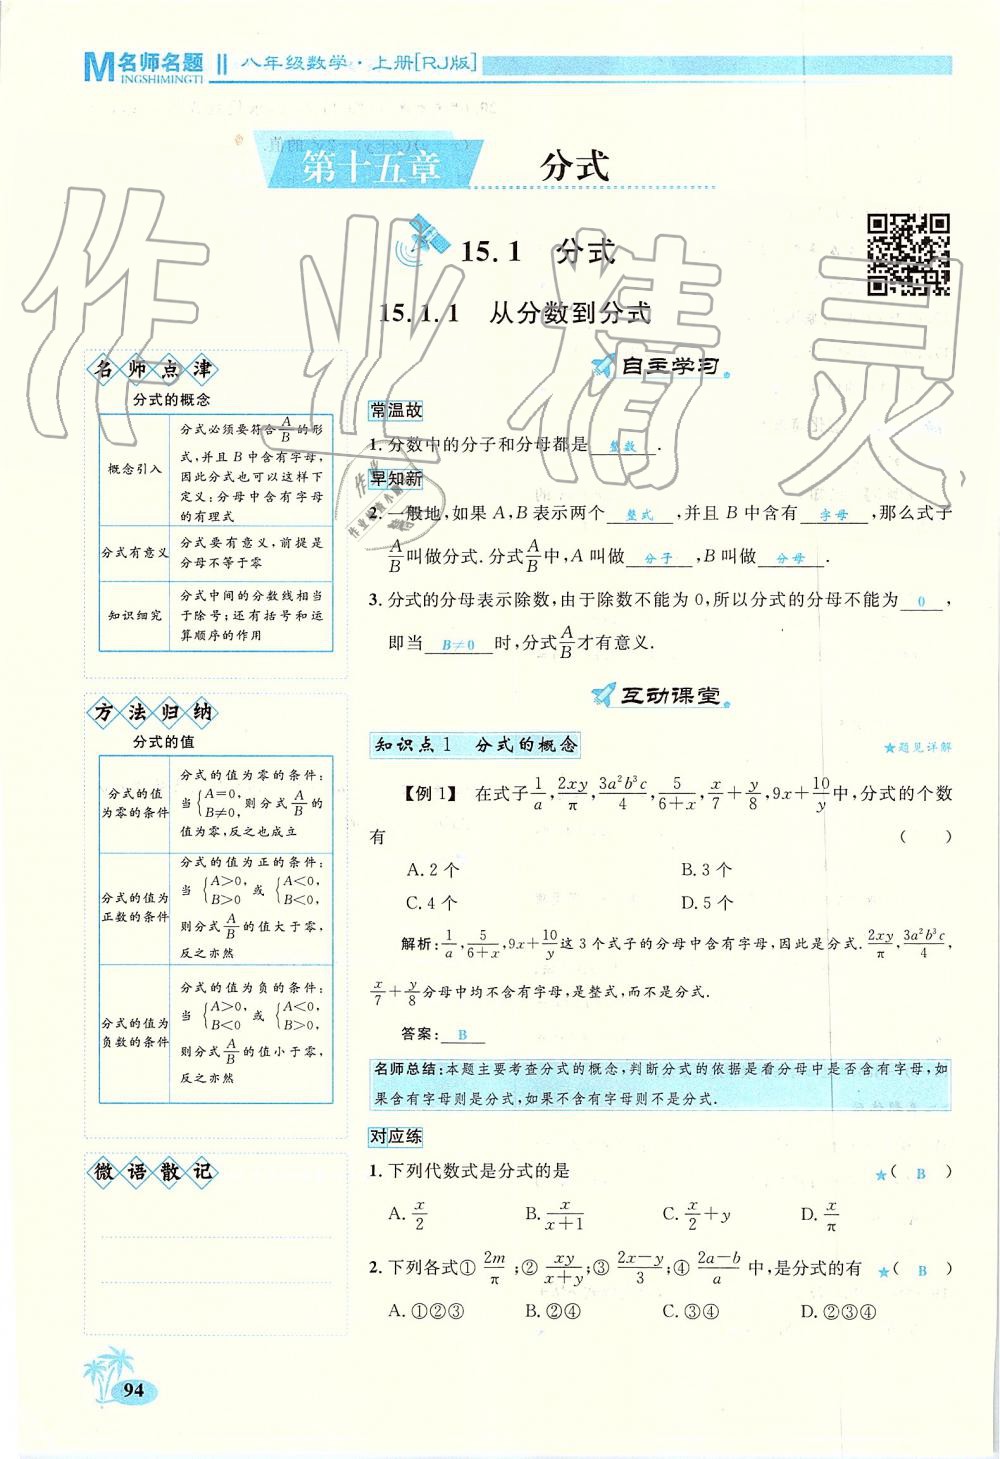 M名师名题 INGSHIMINGTI ‖ 八年级数学·上册[RJ版]
第十五章 分式
15.1 分式
15.1.1 从分数到分式
名师点津
分式的概念
概念引入
分式必须要符合A/B的形
式,并且B中含有字母,
因此分式也可以这样下
定义:分母中含有字母
的有理式
分式有意义
分式要有意义,前提是
分母不等于零
知识细究
分式中间的分数线相当
于除号;还有括号和运
算顺序的作用
方法归纳
分式的值
分式的值
为零的条件
分式的值为零的条件:
当{A=0,B≠0,则分式A/B的
值为零,反之也成立
分式的值为
正数的条件
分式的值为正的条件:
当{A>0,B>0 或{A<0,B<0,
则分式A/B的值大于零,
反之亦然
分式的值为
负数的条件
分式的值为负的条件:
当{A>0,B<0 或{A<0,B>0,
则分式A/B的值小于零,
反之亦然
微语散记
94
自主学习
常温故
1.分数中的分子和分母都是 整数 .
早知新
2.一般地,如果A,B表示两个 整式 ,并且B中含有 字母 ,那么式子
A/B叫做分式.分式A/B中,A叫做 分子 ,B叫做 分母 .
3.分式的分母表示除数,由于除数不能为0,所以分式的分母不能为 0 ,
即当 B≠0 时,分式A/B才有意义.
互动课堂
知识点1 分式的概念 ★题见详解
【例1】 在式子1/a,2xy/π,3a²b³c/4,5/(6+x),x/7+y/8,9x+10/y中,分式的个数
有 ( )
A.2个 B.3个
C.4个 D.5个
解析:1/a,5/(6+x),9x+10/y这3个式子的分母中含有字母,因此是分式.2xy/π,3a²b³c/4,
x/7+y/8分母中均不含有字母,是整式,而不是分式.
答案: B
名师总结:本题主要考查分式的概念,判断分式的依据是看分母中是否含有字母,如
果含有字母则是分式,如果不含有字母则不是分式.
对应练
1.下列代数式是分式的是 ★( B )
A.x/2 B.x/(x+1) C.x/2+y D.x/π
2.下列各式①2m/π;②xy/(x+y);③(2x-y)/3;④(2a-b)/a中,是分式的有 ★( B )
A.①②③ B.②④ C.③④ D.②③④
作业精灵